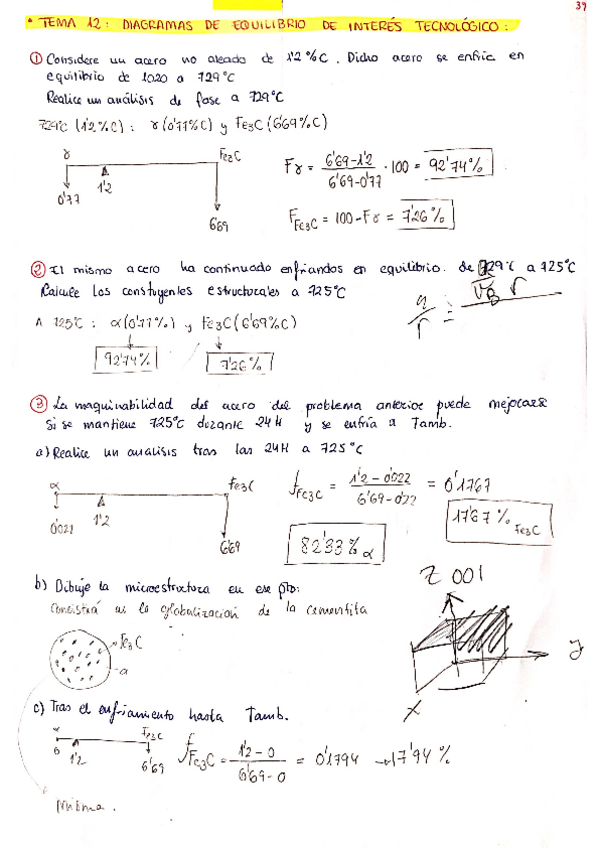 39
• TEMA 12: DIAGRAMAS DE EQUILIBRIO DE INTERÉS TECNOLÓGICO:
① Considere un acero no aleado de 1'2 % C. Dicho acero se enfría en
equilibrio de 1020 a 729°C
Realice un análisis de fase a 729°C
729°C (1'2%C): γ (0'77%C) y Fe3C (6'69%C)
γ Fe3C
0'77 1'2 6'69
Fγ = 6'69-1'2 / 6'69-0'77 · 100 = 92'74%
FFe3C = 100-Fγ = 7'26%
② El mismo acero ha continuado enfriandos en equilibrio. de 729°C a 725°C
Calcule los constuyentes estructurales a 725°C
A 725°C: α (0'77%) y Fe3C (6'69%C)
92'74% 7'26%
③ La maquinabilidad del acero del problema anterior puede mejorarse
Si se mantiene 725°C durante 24H y se enfría a Tamb.
a) Realice un analisis tras las 24H a 725°C
α Fe3C
0'022 1'2 6'69
fFe3C = 1'2-0'022 / 6'69-0'22 = 0'1767
17'67% Fe3C
82'33% α
b) Dibuje la microestructura en ese pto:
Consistirá en la globalización de la cementita
Fe3C
α
Z 001
y
X
c) Tras el enfriamiento hasta Tamb.
α Fe3C
0 1'2 6'69
fFe3C = 1'2-0 / 6'69-0 = 0'1794 → 17'94 %
Misma.